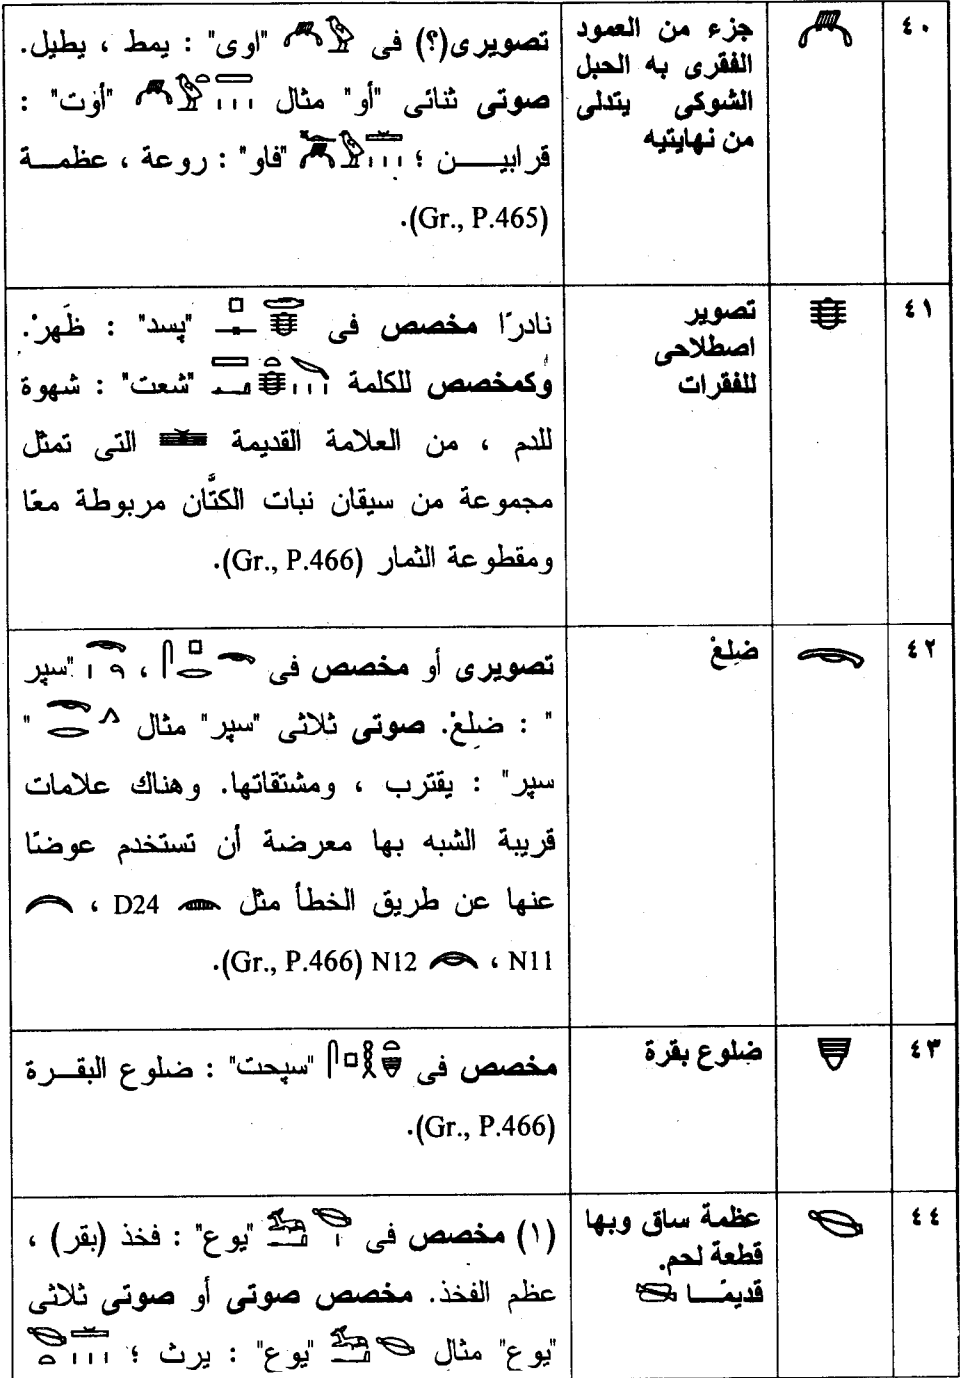 ٤٠
جزء من العمود
الفقرى به الحبل
الشوكى يتدلى
من نهايتيه
تصويرى(؟) فى "اوى" : يمط ، يطيل.
صوتى ثنائى "أو" مثال "أوت" :
قرابيـــن ؛ "فاو" : روعة ، عظمـــة
(Gr., P.465).
٤١
تصوير
اصطلاحى
للفقرات
نادرًا مخصص فى "پسد" : ظَهرْ.
وكمخصص للكلمة "شعت" : شهوة
للدم ، من العلامة القديمة التى تمثل
مجموعة من سيقان نبات الكتَّان مربوطة معًا
ومقطوعة الثمار (Gr., P.466).
٤٢
ضِلعْ
تصويرى أو مخصص فى ، "سپر
" : ضلعْ. صوتى ثلاثى "سپر" مثال "
سپر" : يقترب ، ومشتقاتها. وهناك علامات
قريبة الشبه بها معرضة أن تستخدم عوضًا
عنها عن طريق الخطأ مثل D24 ،
N11 ، N12 (Gr., P.466).
٤٣
ضلوع بقرة
مخصص فى "سپحت" : ضلوع البقـــرة
(Gr., P.466).
٤٤
عظمة ساق وبها
قطعة لحم.
قديمًـــا
(١) مخصص فى "يوع" : فخذ (بقر) ،
عظم الفخذ. مخصص صوتى أو صوتى ثلاثى
"يوع" مثال "يوع" : يرث ؛